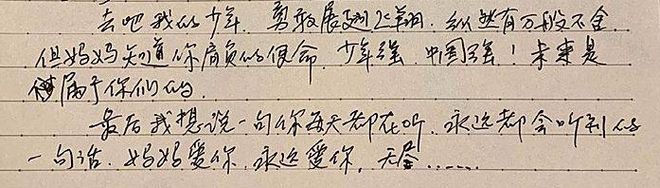 去吧我的少年，勇敢展翅飞翔，纵然有万般不舍
但妈妈知道你肩负的使命，少年强，中国强！未来是
属于你们的。
最后我想说一句你每天都在听，永远都会听到的
一句话，妈妈爱你，永远爱你，无尽……